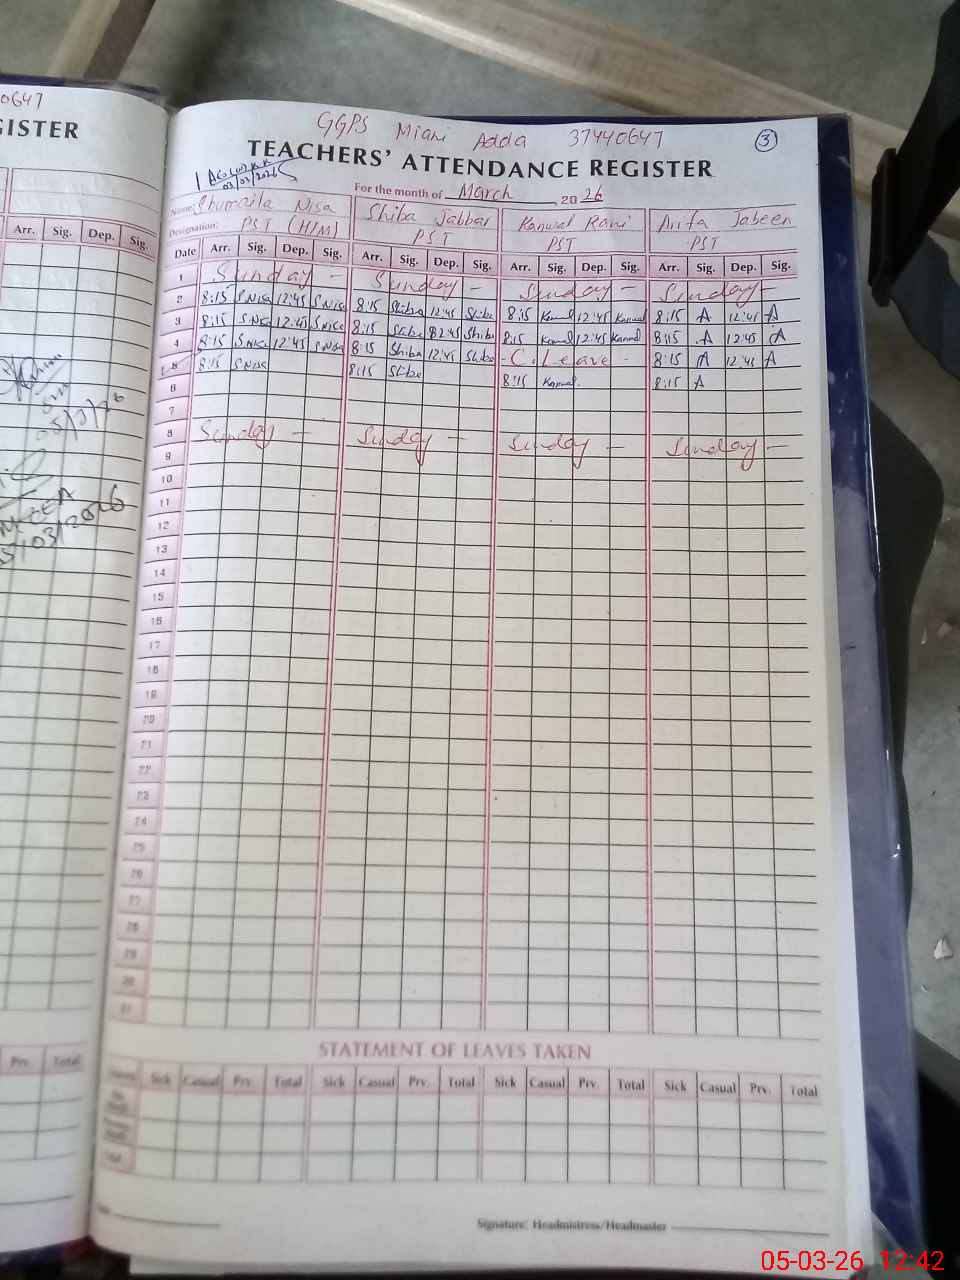 0647
GISTER
Arr. Sig. Dep. Sig.
05/3/26
Prv. Total
GGPS Miani Adda 37440647 3
TEACHERS' ATTENDANCE REGISTER
03/03/2026
For the month of March 2026
Name: Shumaila Nisa Shiba Jabbar Kanwal Rani Arifa Jabeen
Designation: PST (H/M) PST PST PST
Date Arr. Sig. Dep. Sig. Arr. Sig. Dep. Sig. Arr. Sig. Dep. Sig. Arr. Sig. Dep. Sig.
1 Sunday - Sunday - Sunday - Sunday -
2 8:15 S.Nisa 12:45 S.Nisa 8:15 Shiba 12:45 Shiba 8:15 Kanwal 12:45 Kanwal 8:15 A 12:45 A
3 8:15 S.Nisa 12:45 S.Nisa 8:15 Shiba 12:45 Shiba 8:15 Kanwal 12:45 Kanwal 8:15 A 12:45 A
4 8:15 S.Nisa 12:45 S.Nisa 8:15 Shiba 12:45 Shiba - C. Leave - 8:15 A 12:45 A
5 8:15 S.Nisa 8:15 Shiba 8:15 Kanwal 8:15 A
6
7
8 Sunday - Sunday - Sunday - Sunday -
9
10
11
12
13
14
15
16
17
18
19
20
21
22
23
24
25
26
27
28
29
30
31
STATEMENT OF LEAVES TAKEN
Sick Casual Prv. Total Sick Casual Prv. Total Sick Casual Prv. Total Sick Casual Prv. Total
Signature: Headmistress/Headmaster
05-03-26 12:42